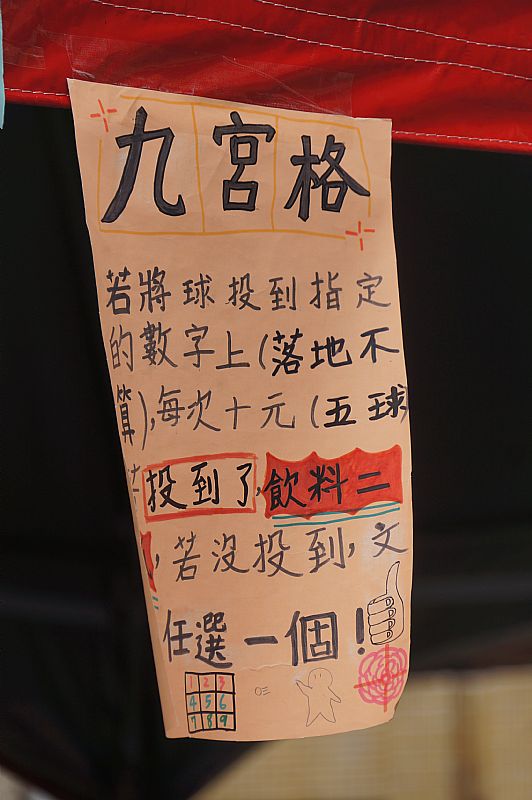 九宮格
若將球投到指定
的數字上(落地不
算),每次十元(五球
投到了,飲料二
,若沒投到,文
任選一個!
1 2 3
4 5 6
7 8 9